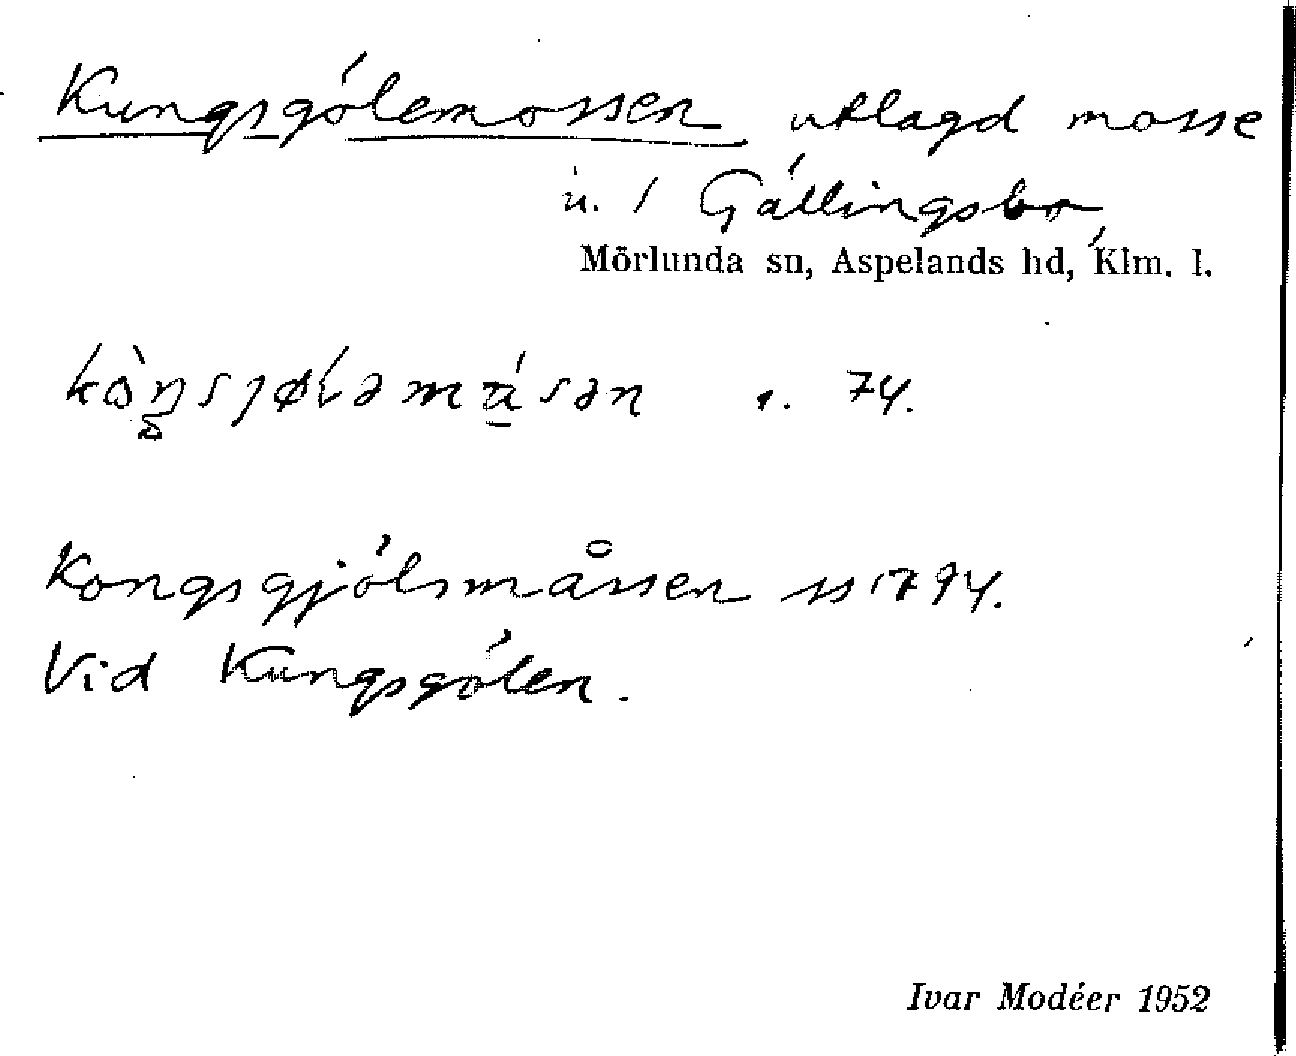 Kungsgölemossen utlagd mosse
u. / Gällingsbo
Mörlunda sn, Aspelands hd, Klm. l.
74.
Kongsgjölsmåssen ss 1794.
Vid Kungsgölen.
Ivar Modéer 1952